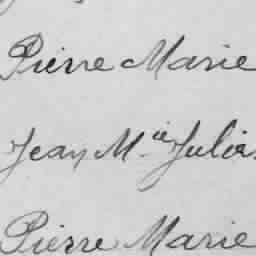 Pierre Marie
Jean M.ie Julie
Pierre Marie